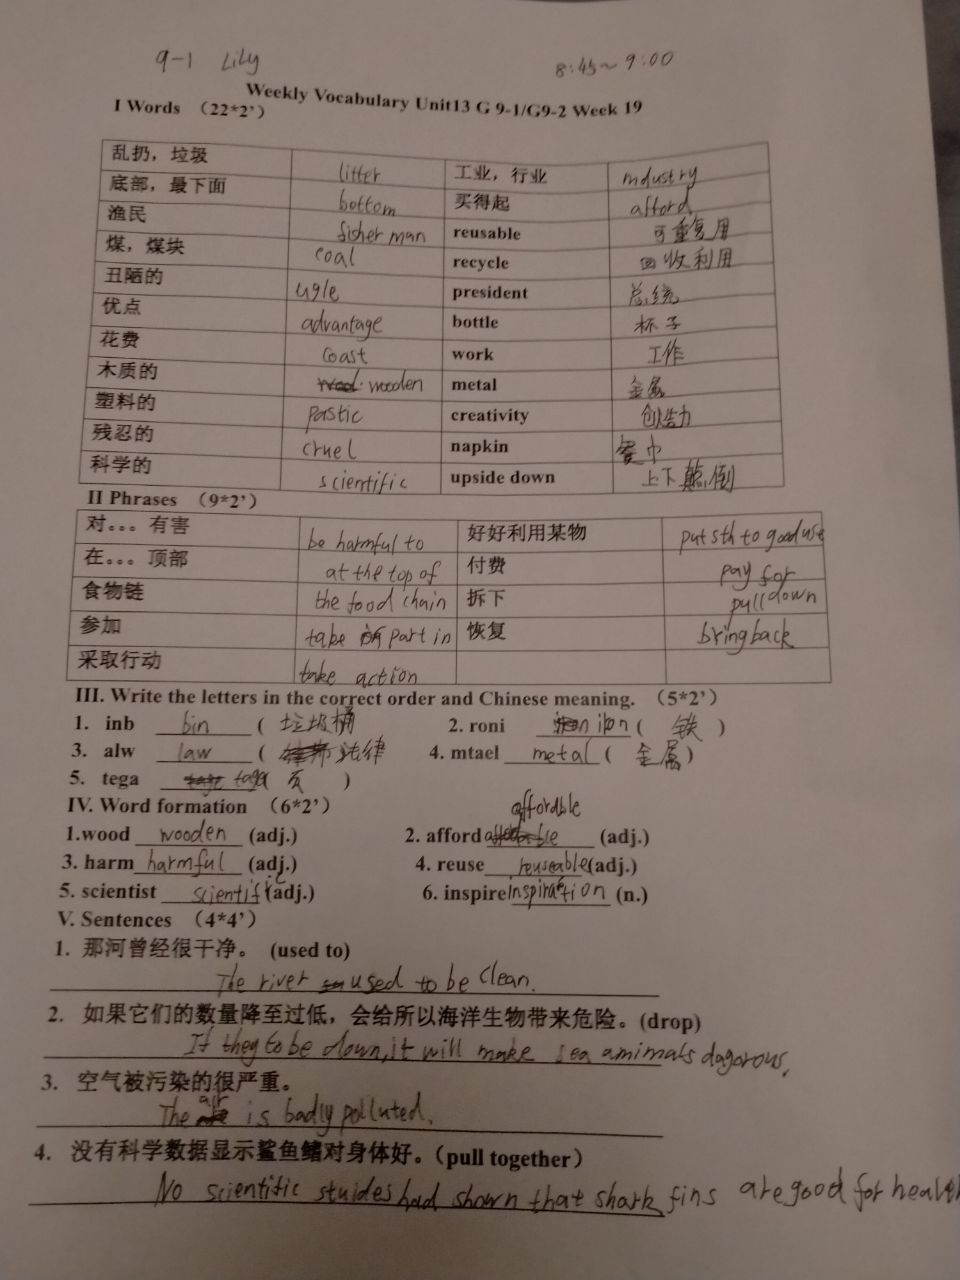 9-1 Lily 8:45~9:00
Weekly Vocabulary Unit13 G 9-1/G9-2 Week 19
I Words （22*2’）
乱扔，垃圾 litter 工业，行业 industry
底部，最下面 bottom 买得起 afford
渔民 fisherman reusable 可重复用
煤，煤块 coal recycle 回收利用
丑陋的 ugle president 总统
优点 advantage bottle 杯子
花费 coast work 工作
木质的 wooden metal 金属
塑料的 pastic creativity 创造力
残忍的 cruel napkin 餐巾
科学的 scientific upside down 上下颠倒
II Phrases （9*2’）
对。。。有害 be harmful to 好好利用某物 put sth to good use
在。。。顶部 at the top of 付费 pay for
食物链 the food chain 拆下 pull down
参加 take part in 恢复 bring back
采取行动 take action
III. Write the letters in the correct order and Chinese meaning. （5*2’）
1. inb bin ( 垃圾桶 2. roni iron ( 铁 )
3. alw law ( 法律 4. mtael metal ( 金属 )
5. tega tage( 页 )
IV. Word formation （6*2’）
1.wood wooden (adj.) 2. afford affordable (adj.)
3. harm harmful (adj.) 4. reuse reuseable (adj.)
5. scientist scientific (adj.) 6. inspire inspiration (n.)
V. Sentences （4*4’）
1. 那河曾经很干净。 (used to)
The river used to be clean.
2. 如果它们的数量降至过低，会给所以海洋生物带来危险。(drop)
If they to be down, it will make sea amimals dagorous.
3. 空气被污染的很严重。
The air is badly polluted.
4. 没有科学数据显示鲨鱼鳍对身体好。（pull together）
No scientific stuides had shown that shark fins are good for health